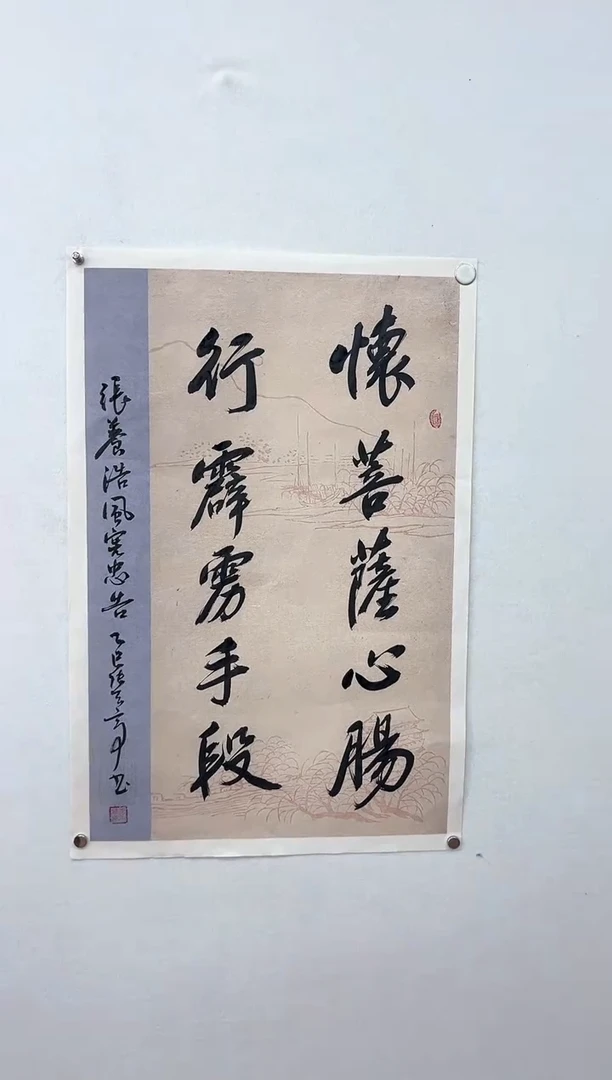 懷菩薩心腸
行霹雳手段
張養浩風宪忠告 乙巳 书